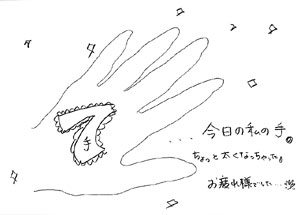 手
... 今日の私の手。
ちょっと太くなっちゃった。
お疲れ様でした...